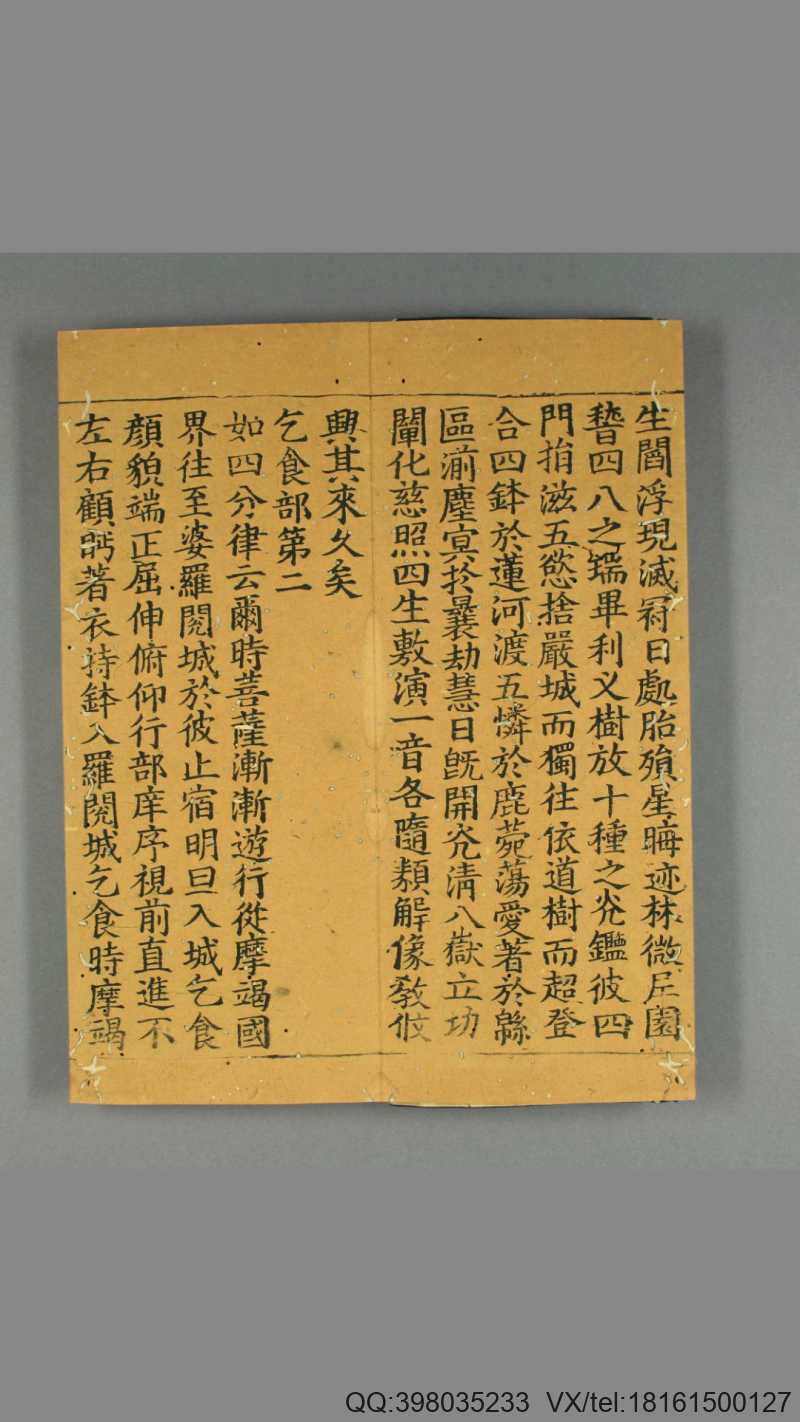 生閻浮現滅冠日處胎殞星晦迹林微尼園
啓四八之瑞畢利叉樹放十種之光鑑彼四
門捐滋五慾捨嚴城而獨往依道樹而超登
合四鉢於蓮河渡五憐於鹿菀蕩愛著於緜
區湔塵冥於曩劫慧日旣開光清八嶽立功
闡化慈照四生敷演一音各隨類解像教攸
興其來久矣
乞食部第二
如四分律云爾時菩薩漸漸遊行從摩竭國
界往至婆羅閱城於彼止宿明旦入城乞食
顏貌端正屈伸俯仰行部庠序視前直進不
左右顧眄著衣持鉢入羅閱城乞食時摩竭
QQ:398035233 VX/tel:18161500127